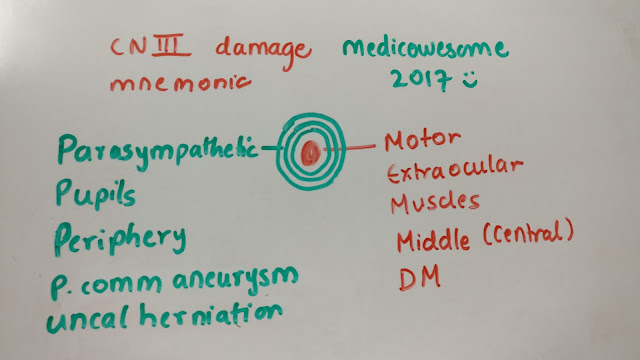 CN III damage medicowesome
mnemonic 2017 ☺
Parasympathetic
Pupils
Periphery
P. comm aneurysm
uncal herniation
Motor
Extraocular
Muscles
Middle (Central)
DM